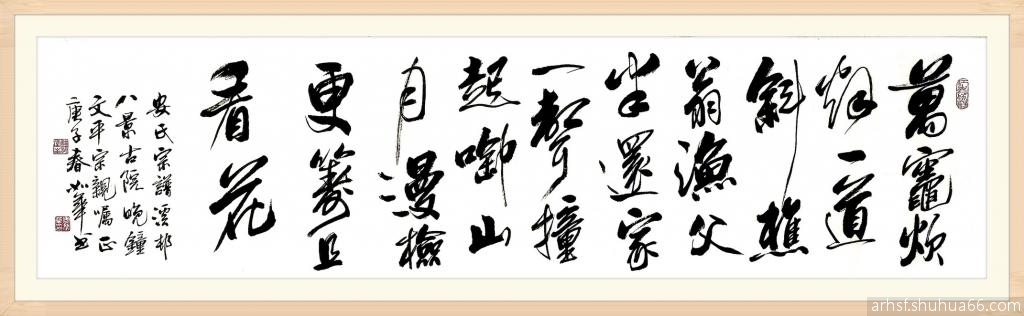 萬竈炊
烟一道
斜樵
翁漁父
半還家
一聲撞
起啣山
月漫檢
更籌且
看花
安氏宗譜溪邨
八景古院晚鐘
文平宗親囑正
庚子春華书
arhsf.shuhua66.com